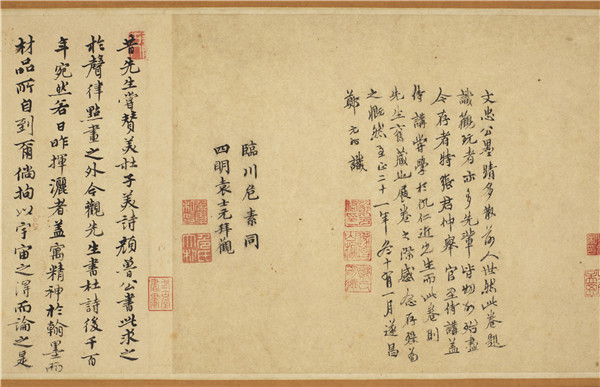 文忠公墨蹟多散前人世然此卷題
識觀玩者亦多先輩皆物故殆盡
今存者特張君仲舉 官至侍講蓋
侍講嘗學於仇仁近先生而此卷則
先生舊藏也展卷之際感念存歿為
之慨然至正二十一年冬十有一月遂昌
鄭元祐識
臨川危素同
四明袁士元拜觀
昔先生嘗贊美杜子美詩顏魯公書此求之
於聲律點畫之外今觀先生書杜詩後千百
年宛然若日昨揮灑者蓋寓精神於翰墨而
材品所自到爾倘抽以宇宙之得而論之是